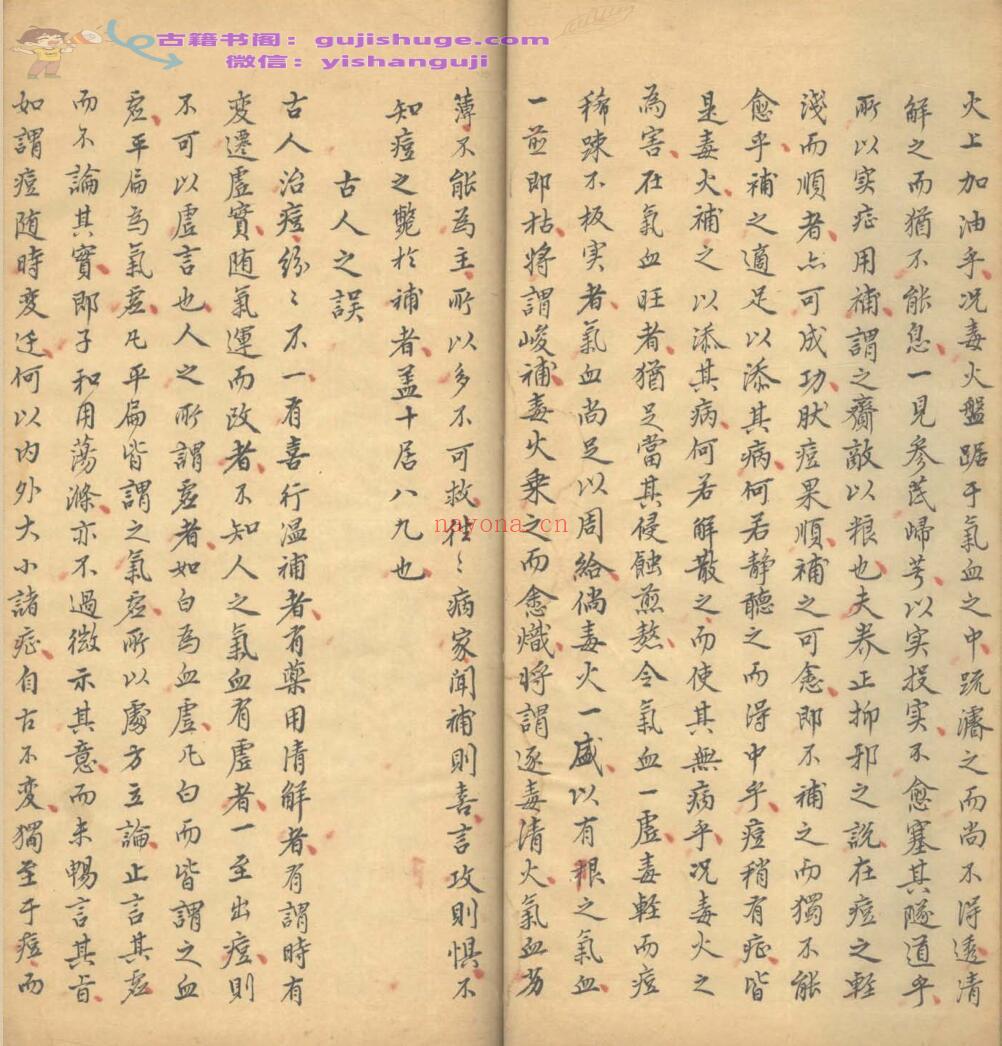 古籍书阁：gujishuge.com
微信：yishanguji
nayona.cn
火上加油乎况毒火盤踞于氣血之中疏濬之而尚不淂透清
解之而猶不能息一見參芪歸芎以实投实不愈塞其隧道乎
所以实症用補謂之齎敵以粮也夫养正抑邪之説在痘之輕
淺而順者亦可成功肰痘果順補之可愈即不補之而獨不能
愈乎補之適足以添其病何若静聽之而淂中乎痘稍有症皆
是毒火補之以添其病何若解散之而使其無病乎况毒火之
為害在氣血旺者猶足當其侵蝕煎熬令氣血一虚毒輕而痘
稀踈不板実者氣血尚足以周給倘毒火一盛以有根之氣血
一煎即枯将謂峻補毒火乗之而愈熾将謂逐毒清火氣血芴
薄不能為主所以多不可救徃〻病家闻補則喜言攻則惧不
知痘之斃於補者盖十居八九也
古人之誤
古人治痘紛〻不一有喜行温補者有藥用清解者有謂時有
変遷虚實随氣運而改者不知人之氣血有虚者一至出痘則
不可以虚言也人之所謂虚者如白為血虚凡白而皆謂之血
虚平扁為氣虚凡平扁皆謂之氣虚所以處方立論止言其虚
而不論其實即子和用蕩滌亦不過微示其意而未暢言其旨
如謂痘随時变迁何以内外大小諸症自古不変獨至于痘而